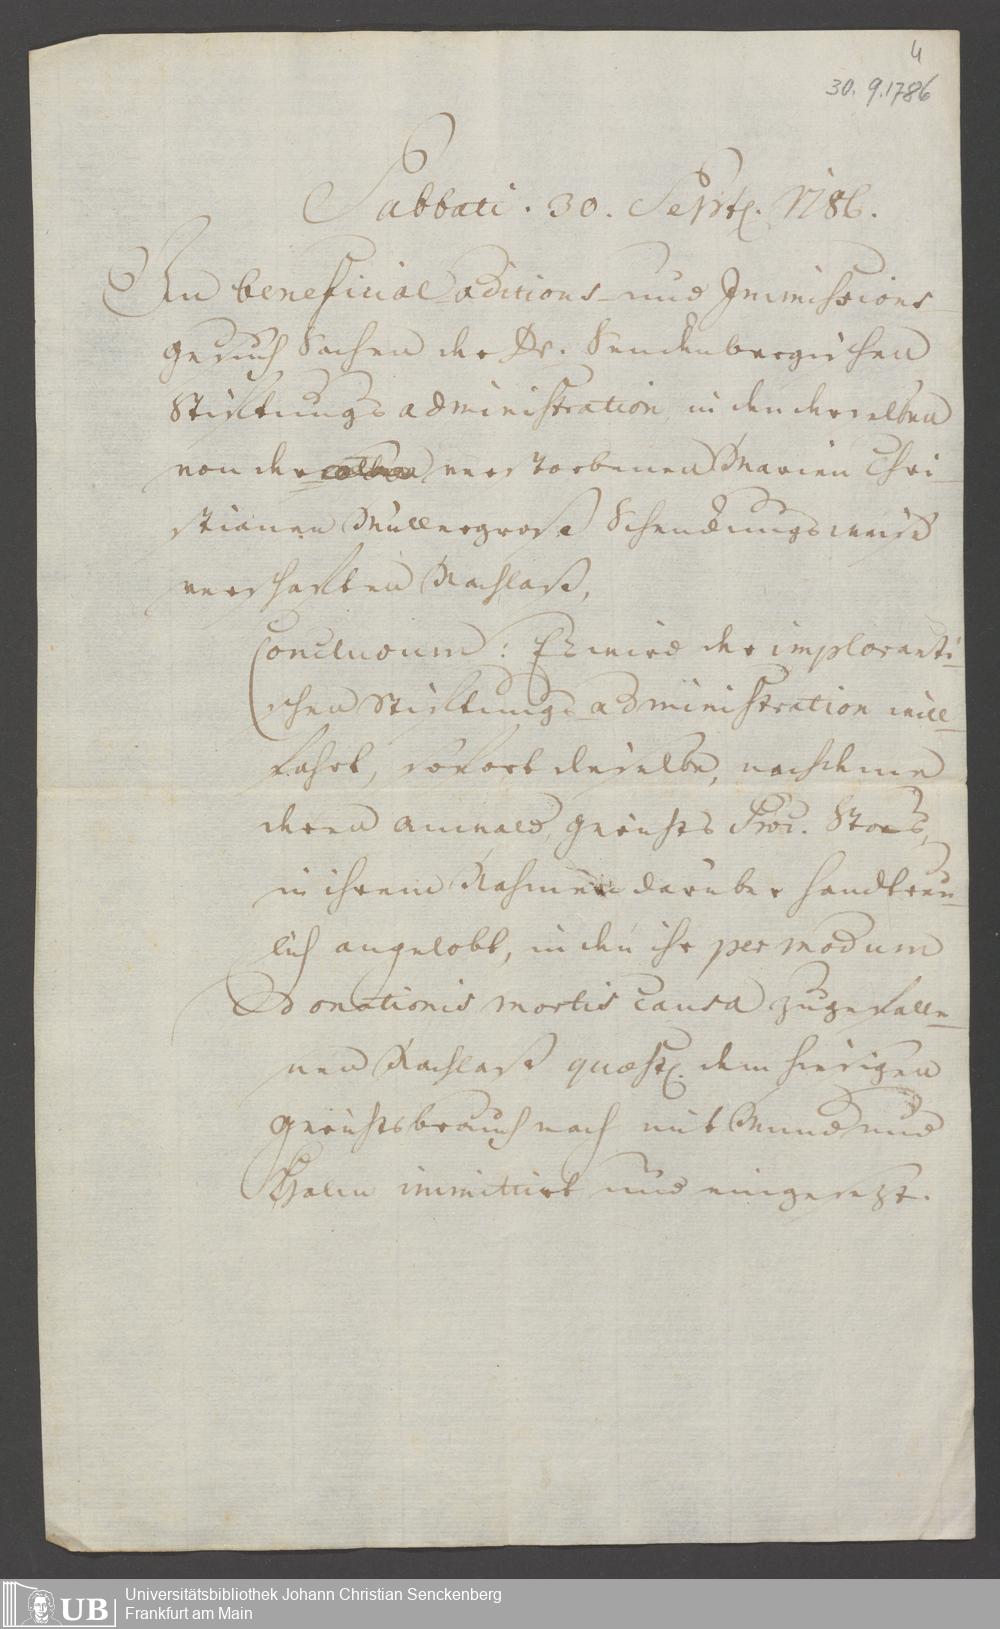 4
30. 9. 1786
Sabbati. 30. Septb. 1786.
In beneficial aditions- und Immissions-
gesuch Sachen der Dr. Senckenbergischen
Stiftungs administration in den derselben
von der verstorbenen Marien Chri-
stianen Müllergrosß Schenckungsweise
verschafften Nachlaß,
Conclusum: Es wird der imploranti-
schen Stiftungs administration will-
fahrt, sofort dieselbe, nachdeme
deren anwald, gerichts Proc. Stoes,
in ihrem Nahmen darüber handtreu-
lich angelobt, in den ihr per modum
Donationis mortis causa zugefalle-
nen Nachlaß quaest. dem hiesigen
gerichtsbrauch nach mit Mund und
Halm immittirt und eingesezt.
UB
Universitätsbibliothek Johann Christian Senckenberg
Frankfurt am Main